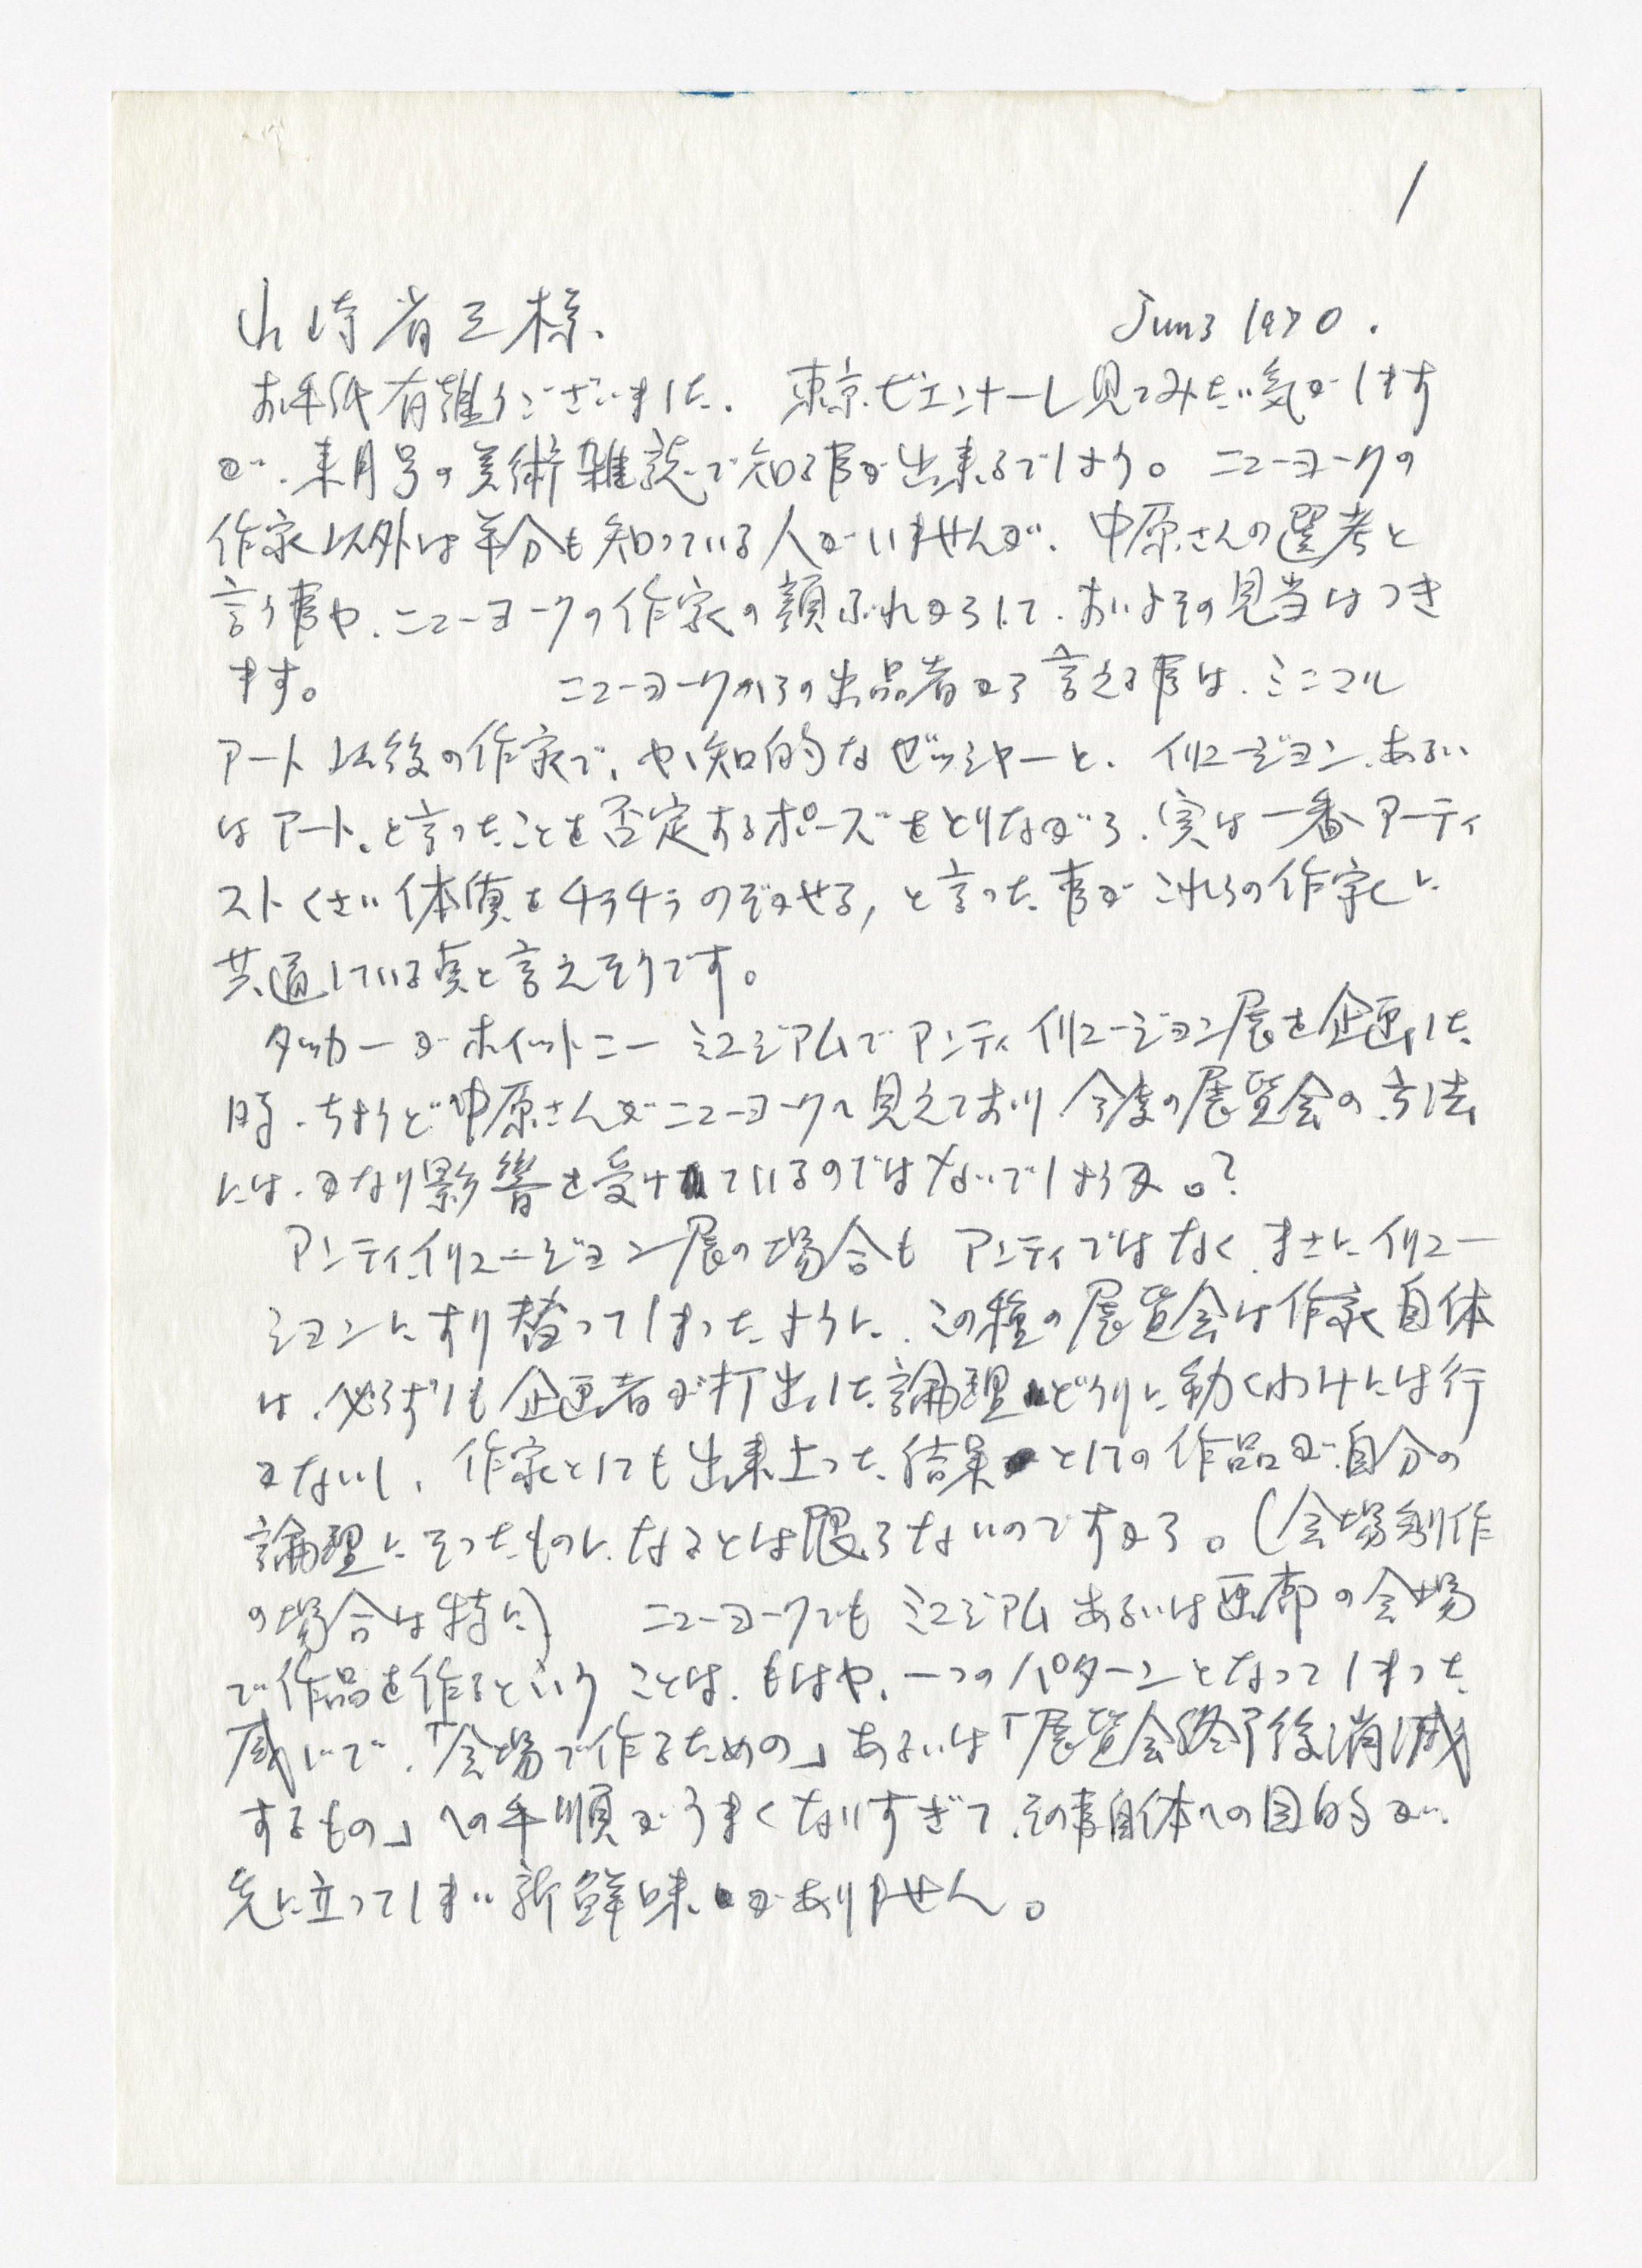 1
山崎省三様、
Jun 3 1970.
お手紙有難うございました。東京ビエンナーレ見てみたい気がします
が、来月号の美術雑誌で知る事が出来るでしょう。ニューヨークの
作家以外は半分も知っている人がいませんが、中原さんの選考と
言う事や、ニューヨークの作家の顔ぶれからして、おいよその見当はつき
ます。ニューヨークからの出品者から言える事は、ミニマル
アート以後の作家で、やゝ知的なゼッシャーと、イリュージョン、あるい
はアート、と言ったことを否定するポーズをとりながら、実は一番アーティ
ストくさい体質をチラチラのぞかせる、と言った事がこれらの作家に
共通している点と言えそうです。
タッカーがホイットニーミュジアムでアンティイリュージョン展を企画した
時、ちょうど中原さんがニューヨークへ見えており今度の展覧会の方法
には、かなり影響を受けているのではないでしょうか。?
アンティイリュージョン展の場合もアンティではなく、まさにイリュー
ションにすり替ってしまったように、この種の展覧会は作家自体
は、必らずしも企画者が打出した論理どうりに動くわけには行
かないし、作家としても出来上った結果としての作品が自分の
論理にそったものになるとは限らないのですから。(会場制作
の場合は特に)ニューヨークでもミュジアムあるいは画廊の会場
で作品を作るということは、もはや、一つのパターンとなってしまった
感じで、「会場で作るための」あるいは「展覧会終了後消滅
するもの」への手順がうまくなりすぎて、その事自体への目的が、
先に立ってしまい新鮮味がありません。